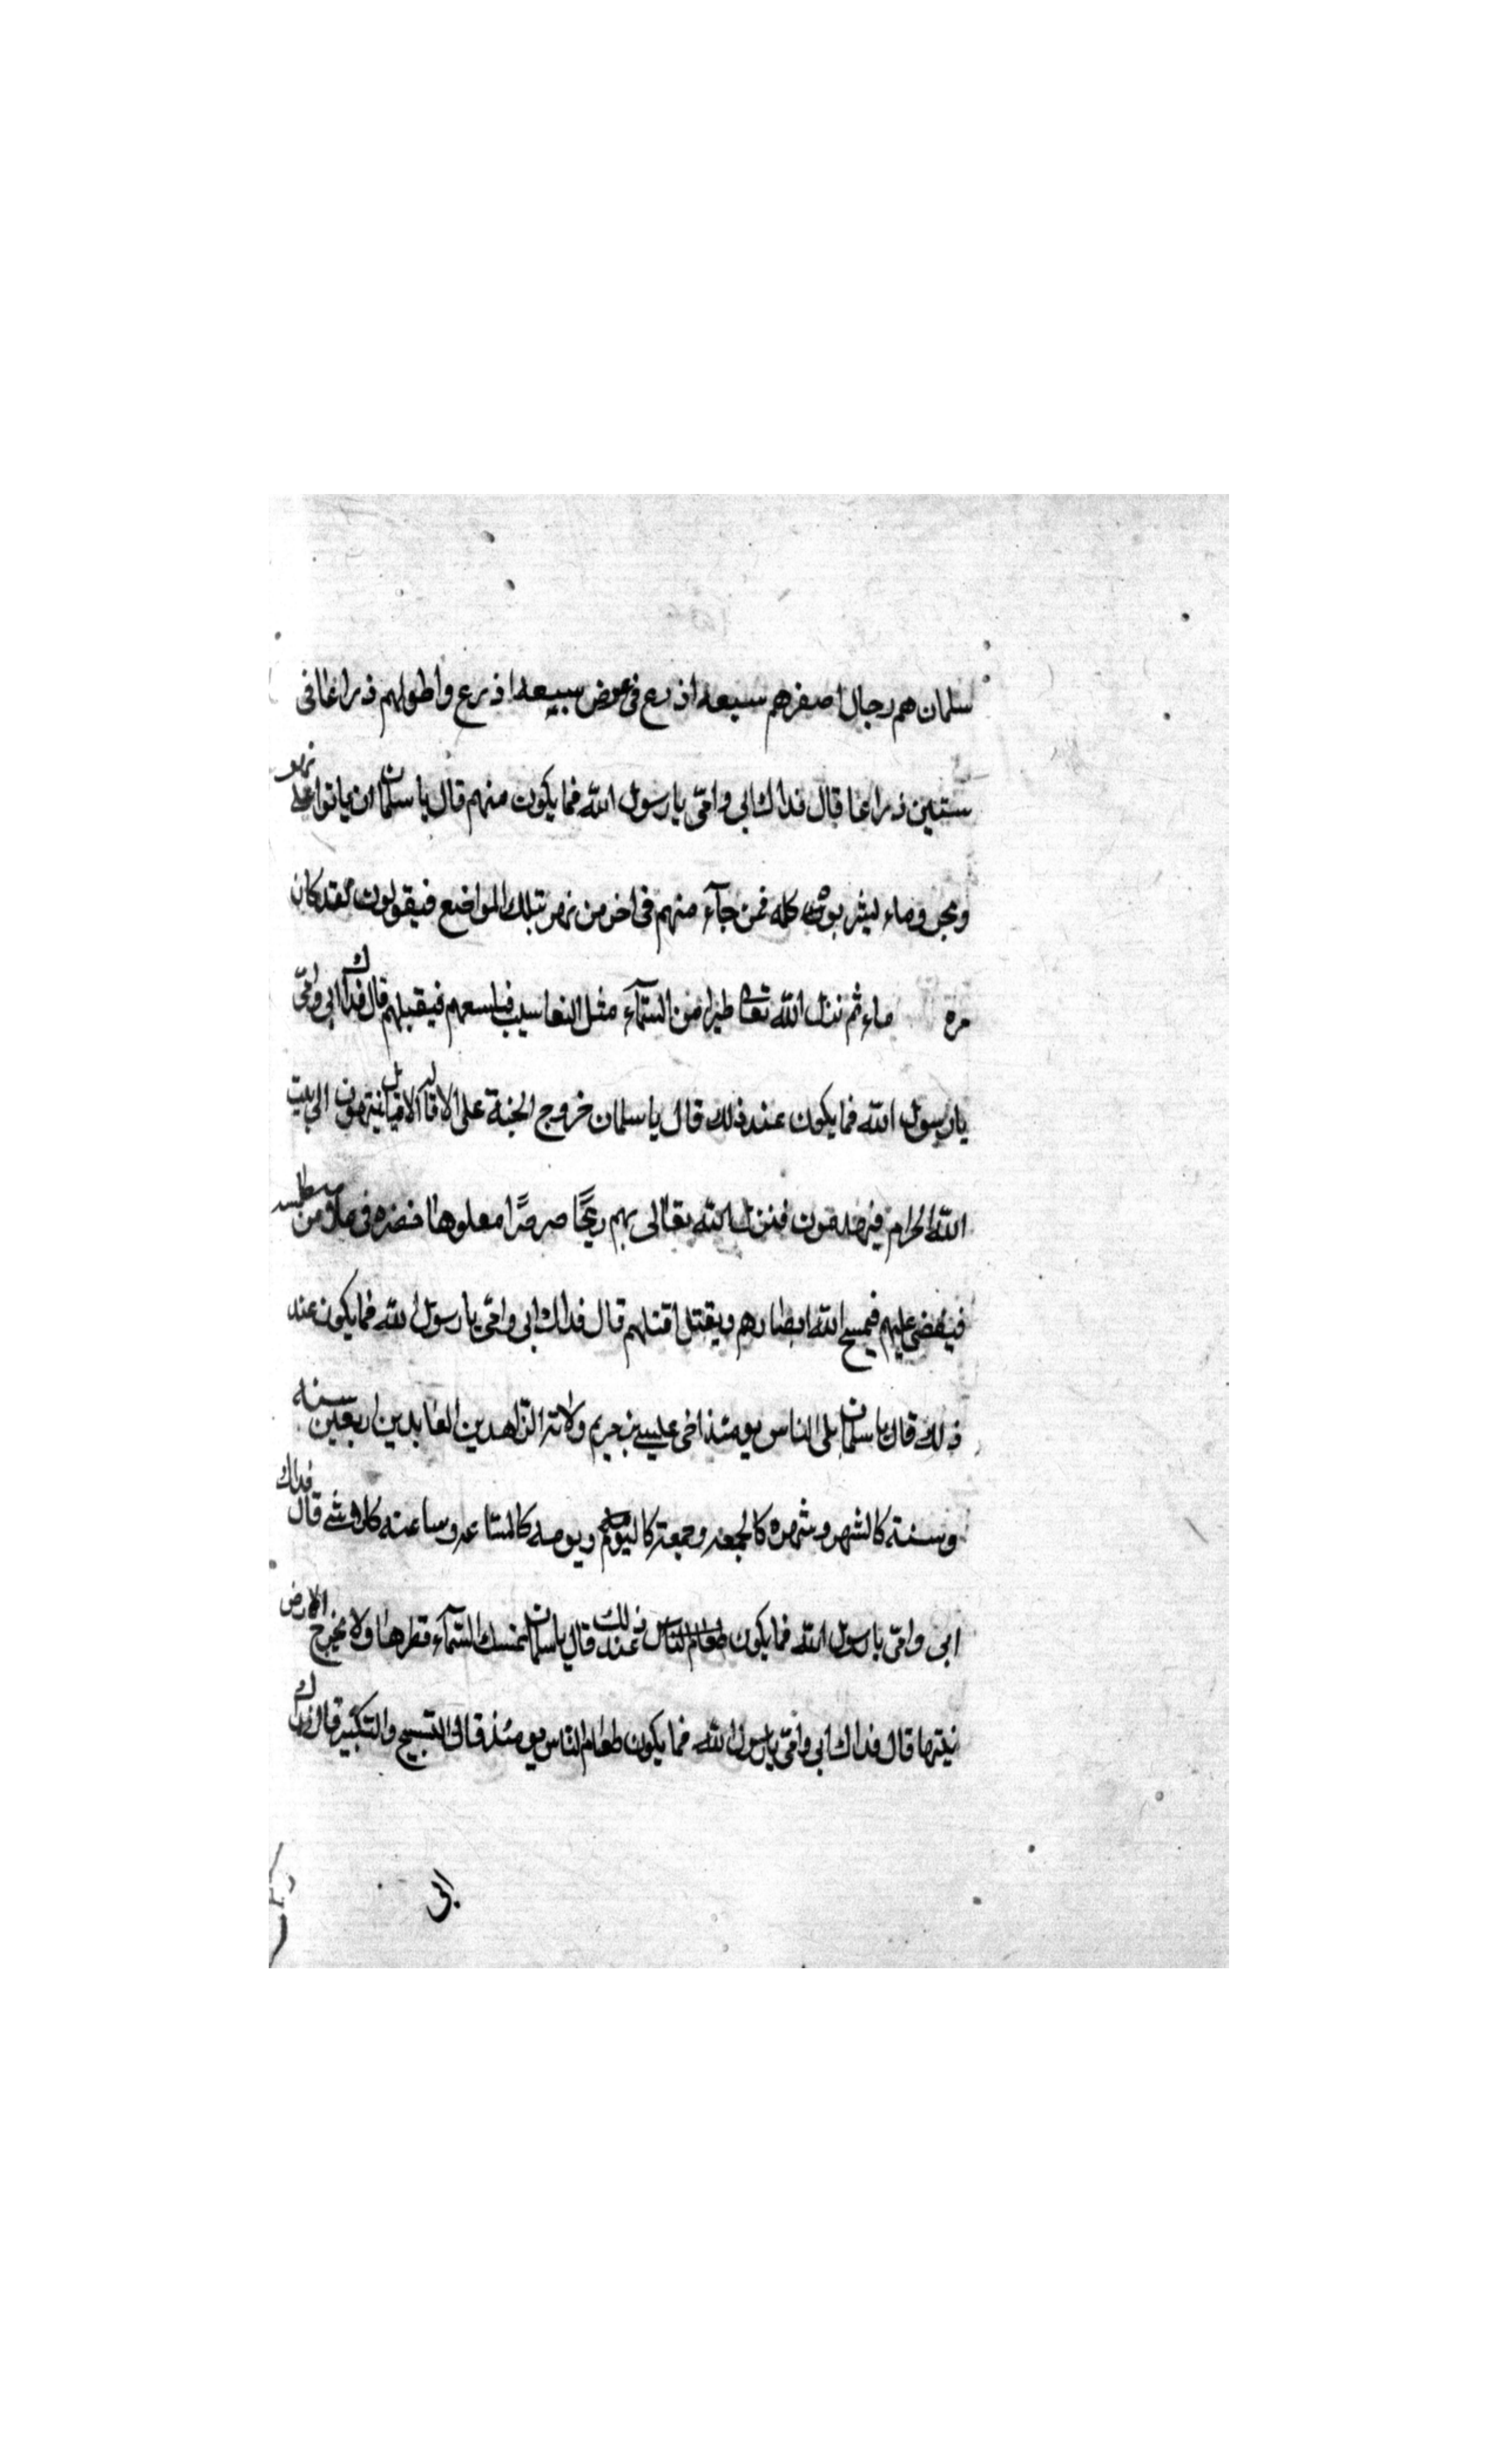 سلمان هم رجال اصغرهم سبعه اذرع فى عرض سبعه اذرع واطولهم ذراعا فى
ستين ذراعا قال فداك ابى وامّى يا رسول الله فما يكون منهم قال يا سلمان ان ياتوا على نهر
وماء ليشربوا كله فمن جآء منهم فى اخر من نهر بتلك المواضع فيقولون لقد كان
مره ماء ثم ننزل الله تعالى طيرا من السّمآء مثل فيلسعهم فيقبلهم قال فداك ابى وامّى
يا رسول الله فما يكون عند ذلك قال يا سلمان خروج على فينتهون الى بيت
الله الحرام الله تعالى بهم ريحًا صرصرًا خضره فى
عليهم فيمسح الله ابصارهم ويقتل قال فداك ابى وامّى يا رسول الله فما يكون عند
ذلك قال يا سلمان يلى الناس يومئذ اخى عيسى بن مريم ولا ترا الزّاهدين العابدين اربعين سنه
وسنته كالشهر وشهره كالجمعه وجمعته كاليوم ويومه كالسّاعه وساعته كلا شے قال فداك
ابى وامّى يا رسول الله فما يكون طعام الناس عند ذلك قال يا سلمان تمسك السّمآء قطرها ولا تخرج الارض
نبتها قال فداك ابى وامّى يا رسول الله فما يكون طعام النّاس يومئذ قال التسبيح والتكبير قال فداك
ابى